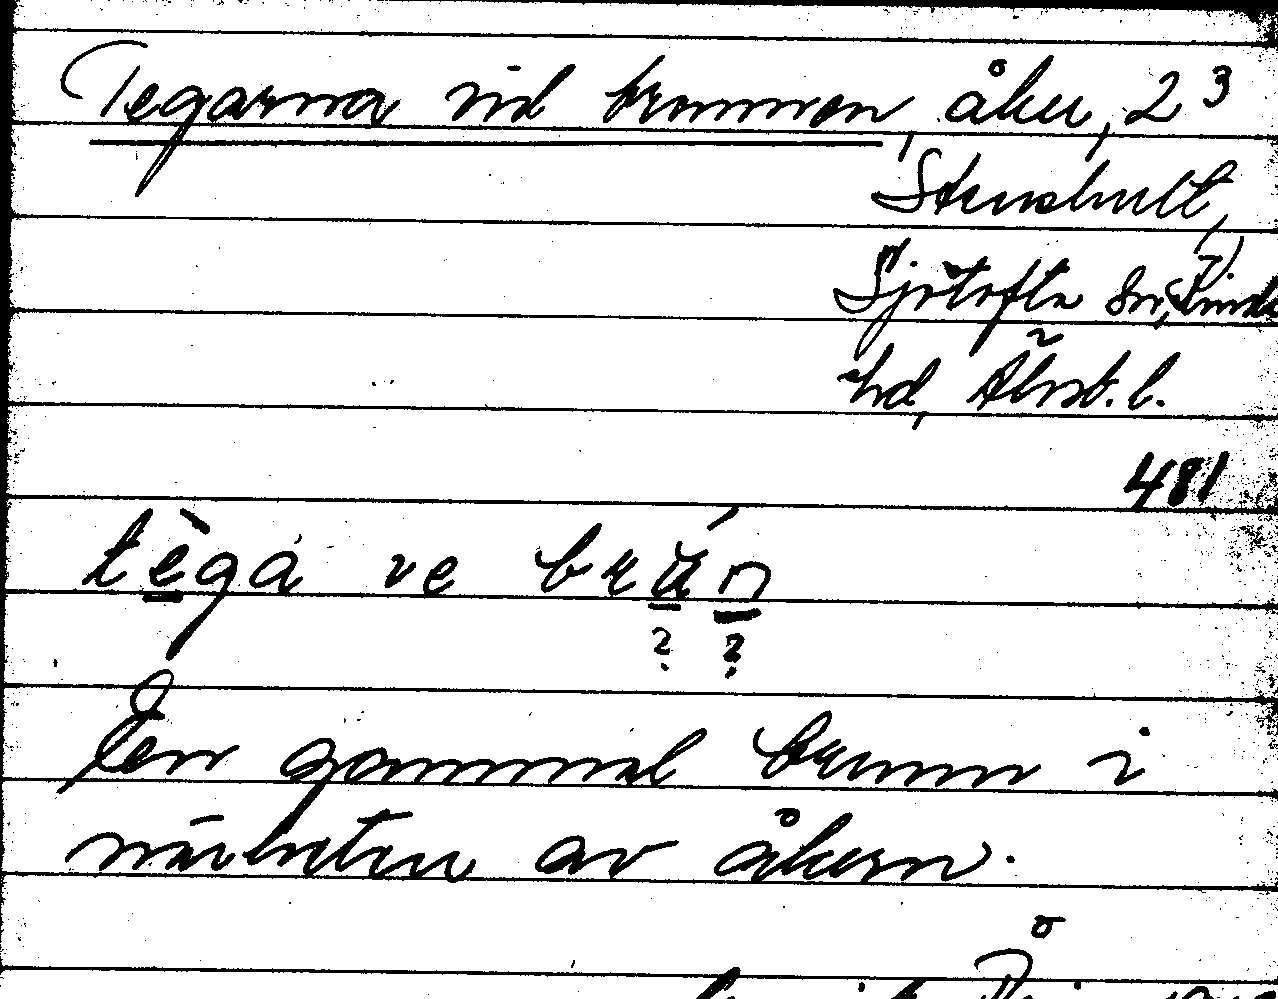 Tegarna vid brunnen, åker, 2³
Stenshult,
Sjötofta sn, Kinds
hd, Älvsb. l.
481
tègą ve brún
? ?
En gammal brunn i
närheten av åkern.